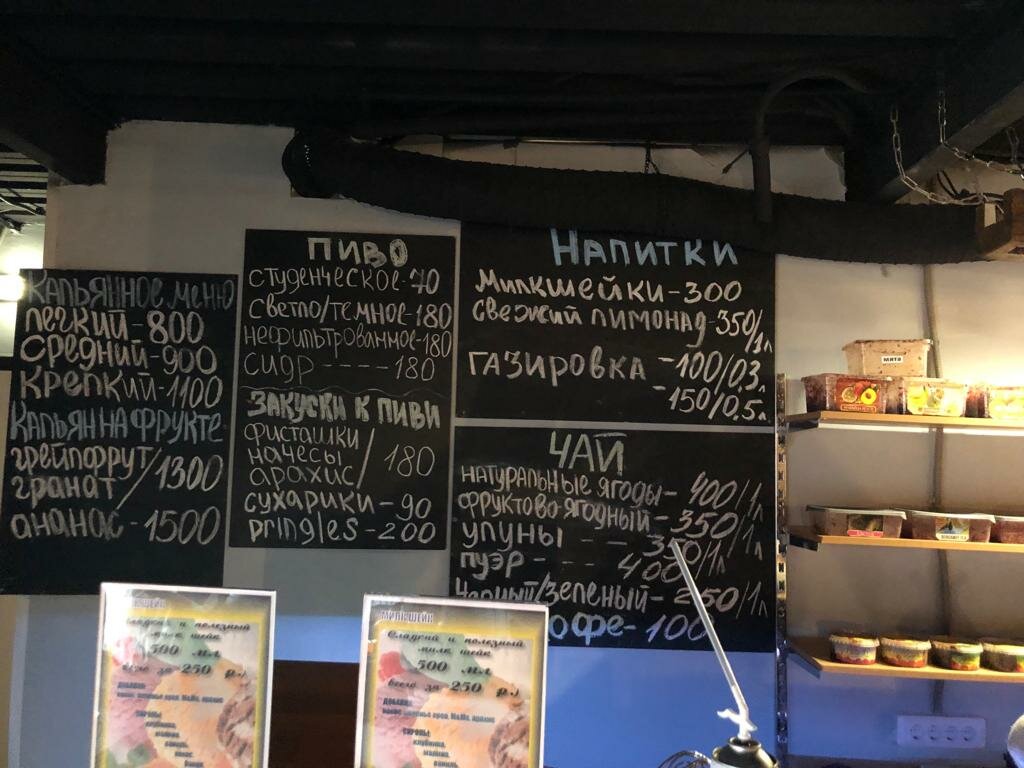 Кальянное меню
легкий - 800
средний - 900
крепкий - 1100
Кальян на фрукте
грейпфрут/
гранат/ 1300
ананас - 1500
ПИВО
студенческое - 70
светло/темное - 180
нефильтрованное - 180
сидр - - - - 180
Закуски к пиви
фисташки
начесы / 180
арахис
сухарики - 90
pringles - 200
Напитки
Милкшейки - 300
свежий лимонад - 350/1л
газировка - 100/0.3л
- 150/0.5л
ЧАЙ
натуральные ягоды - 400/1л
фруктово-ягодный - 350/1л
улуны - - 350/1л
пуэр - - - 400/1л
Черный/зеленый - 250/1л
офе - 100
МИЛКШЕЙК
Сладкий и полезный
милк шейк
500 мл
всего за 250 р.)
ДОБАВКИ:
СИРОПЫ:
клубника,
малина,
ваниль,
кокос,
банан
МИЛКШЕЙК
Сладкий и полезный
милк шейк
500 мл
всего за 250 р.)
ДОБАВКИ:
СИРОПЫ:
клубника,
малина,
ваниль,
МЯТА